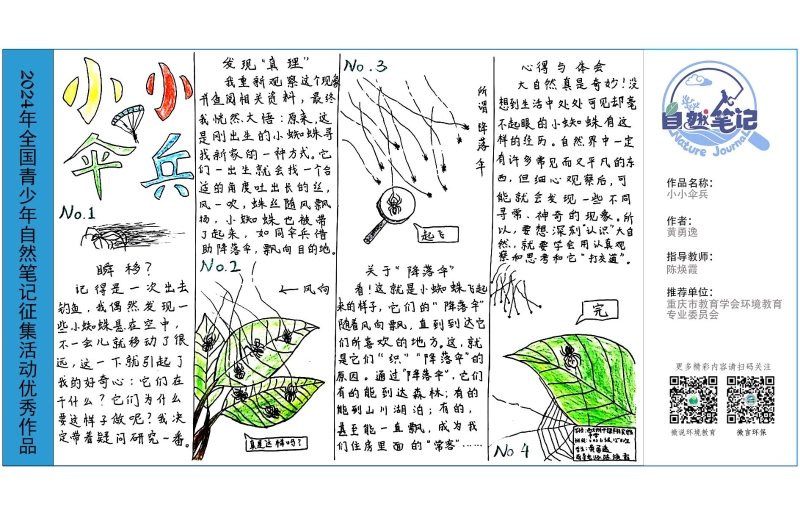 2024年全国青少年自然笔记征集活动优秀作品
小小
伞兵
No.1
瞬移?
记得是一次出去
钓鱼,我偶然发现一
些小蜘蛛悬在空中,
不一会儿就移动了很
远,这一下就引起了
我的好奇心:它们在
干什么?它们为什么
要这样子做呢?我决
定带着疑问研究一番。
发现“真理”
我重新观察这个现象
并查阅相关资料,最终
我恍然大悟:原来,这
是刚出生的小蜘蛛寻
找新家的一种方式。它
们一出生就会找一个合
适的角度吐出长的丝,
风一吹,蛛丝随风飘
扬,小蜘蛛也被带
了起来,如同伞兵借
助降落伞,飘向目的地。
No.2
←风向
真是这样吗?
No.3
所谓降落伞
起飞
关于“降落伞”
看!这就是小蜘蛛飞起
来的样子,它们的“降落伞”
随着风向飘,直到到达它
们所喜欢的地方。这,就
是它们“织”“降落伞”的
原因。通过“降落伞”,它们
有的能到达森林;有的
能到山川湖泊;有的,
甚至能一直飘,成为我
们住房里面的“常客”……
心得与体会
大自然真是奇妙!没
想到生活中处处可见却毫
不起眼的小蜘蛛有这
样的经历。自然界中一定
有许多常见而又平凡的东
西,但细心观察后,可
能就会发现一些不同
寻常、神奇的现象。所
以,要想深刻“认识”大自
然,就要学会用认真观
察和思考和它“打交道”。
完
No 4
自然笔记
Nature Journal
作品名称:
小小伞兵
作者:
黄勇逸
指导教师:
陈焕霞
推荐单位:
重庆市教育学会环境教育
专业委员会
更多精彩内容请扫码关注
微说环境教育
微言环保